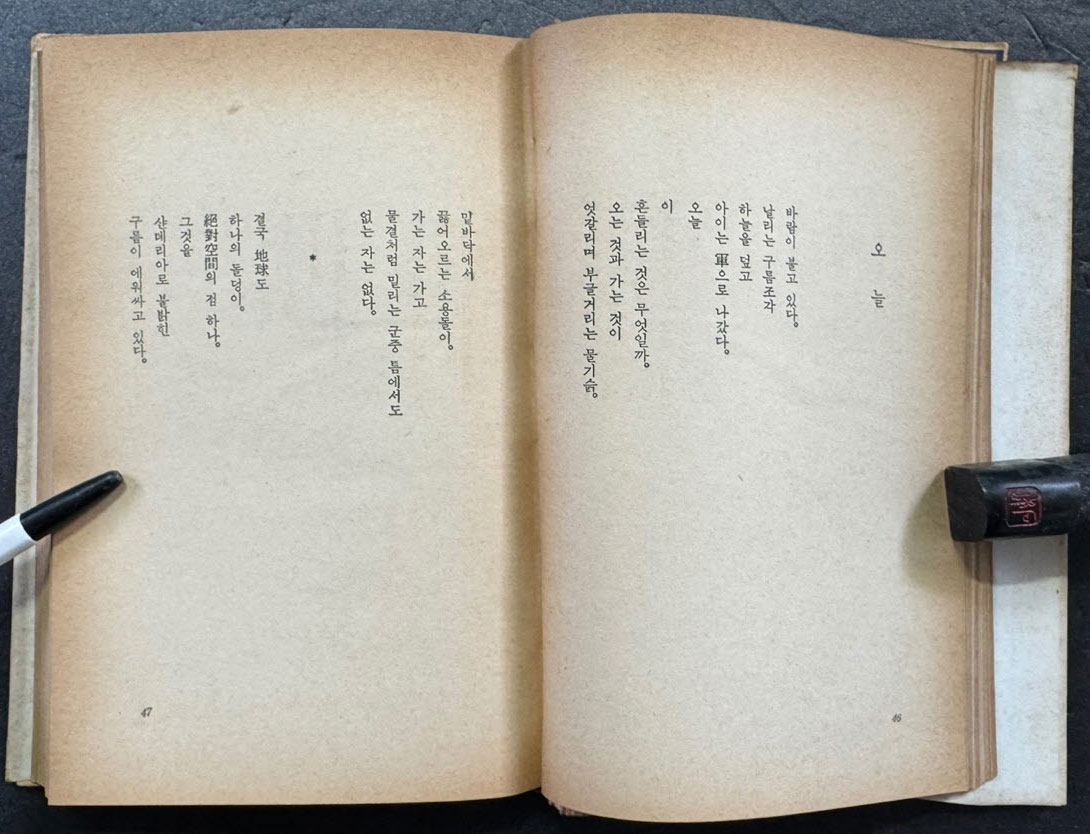 오늘
바람이 불고 있다.
날리는 구름조각
하늘을 덮고
아이는 軍으로 나갔다.
오늘
이
흔들리는 것은 무엇일까.
오는 것과 가는 것이
엇갈리며 부글거리는 물기슭.
46
밑바닥에서
끓어오르는 소용돌이.
가는 자는 가고
물결처럼 밀리는 군중 틈에서도
없는 자는 없다.
*
결국 地球도
하나의 돌덩이.
絕對空間의 점 하나.
그것을
샨데리아로 불밝힌
구름이 에워싸고 있다.
47